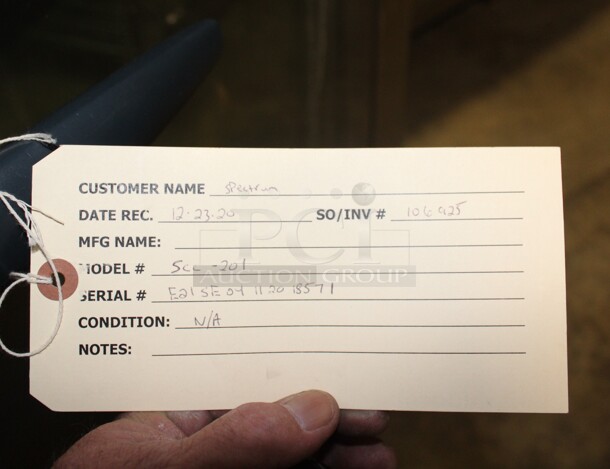 CUSTOMER NAME Spectrum
DATE REC. 12-23-20 SO/INV # 106925
MFG NAME:
MODEL # Scc-201
SERIAL # E21SE04112018571
CONDITION: N/A
NOTES:
PCI
AUCTION GROUP